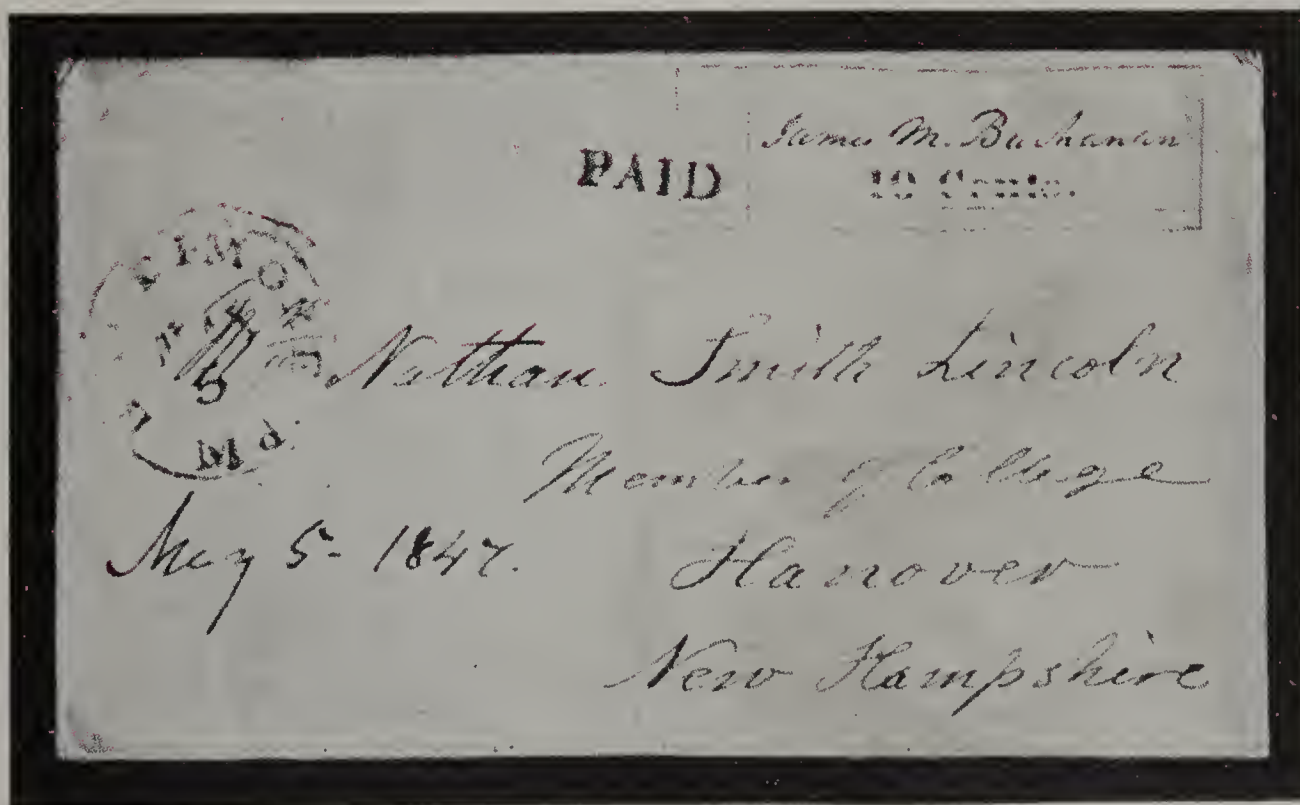 James M. Buchanan
10 Cents.
PAID
TIMORE
5
Md.
Nathan Smith Lincoln
Member of College
Hanover
New Hampshire
May 5 - 1847.